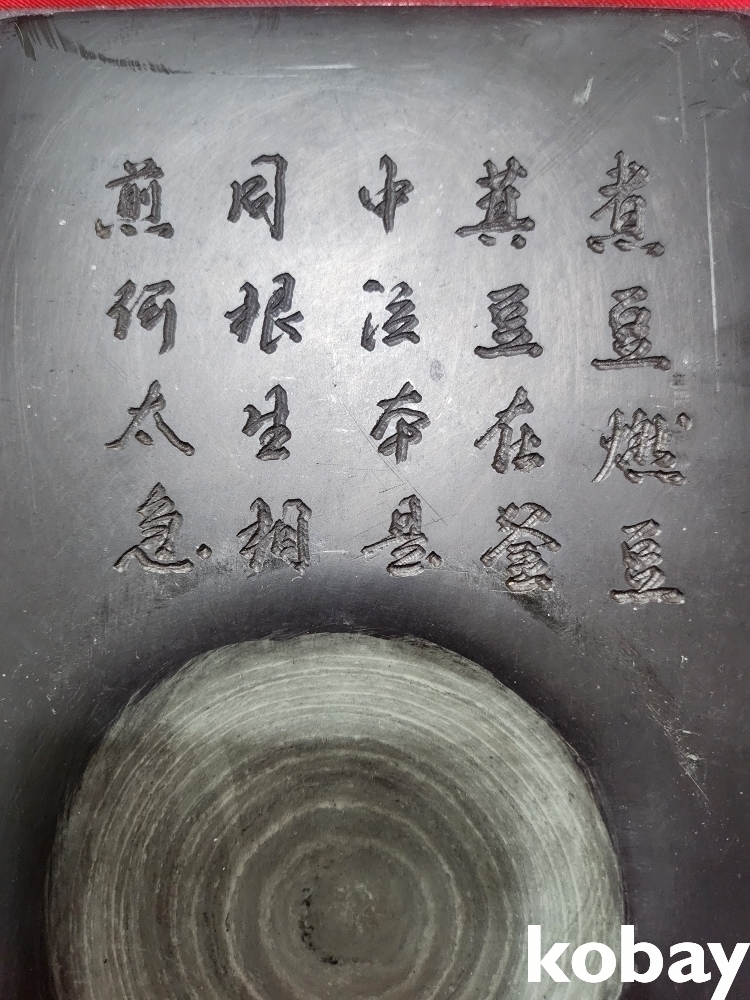 煮豆燃豆
萁豆在釜
中泣本是
同根生相
煎何太急
kobay